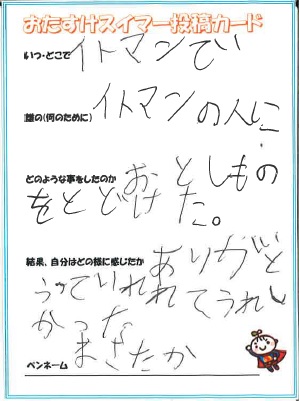 おたすけスイマー投稿カード
いつ・どこで イトマンで
誰の(何のために) イトマンの人に
どのような事をしたのか おとしもの
をとどけた。
結果、自分はどの様に感じたか ありがと
うっていわれてうれし
かった
ペンネーム まさたか